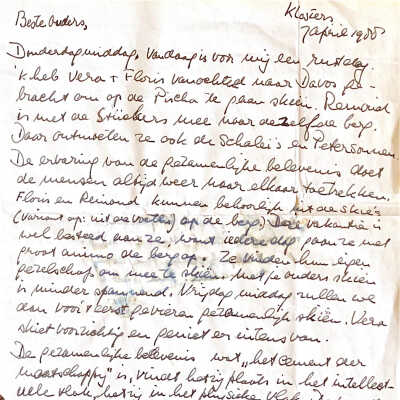 Klosters,
Beste ouders, 7 april 1988
Donderdagmiddag. Vandaag is voor mij een rustdag.
Ik heb Vera + Floris vanochtend naar Davos ge-
bracht om op de Pischa te gaan skiën. Reinoud
is met de mee naar dezelfde berg.
Daar ontmoeten ze ook de en
De ervaring van de gezamenlijke belevenis doet
de mensen altijd weer naar elkaar toetrekken.
Floris en Reinoud kunnen behoorlijk uit de skiës
(variant op: uit de voeten) op de berg. Deze vakantie is
wel besteed aan ze, want iedere dag gaan ze met
groot animo de berg op. Ze vinden hun eigen
gezelschap om mee te skiën. Met je ouders skiën
is minder spannend. Vrijdagmiddag zullen we
dan voor 't eerst gevieren gezamenlijk skiën. Vera
skiet voorzichtig en geniet er intens van.
De gezamenlijke belevenis wat "het cement der
maatschappij" is, vindt hetzij plaats in het intellect-
uele vlak, hetzij in het fysische vlak